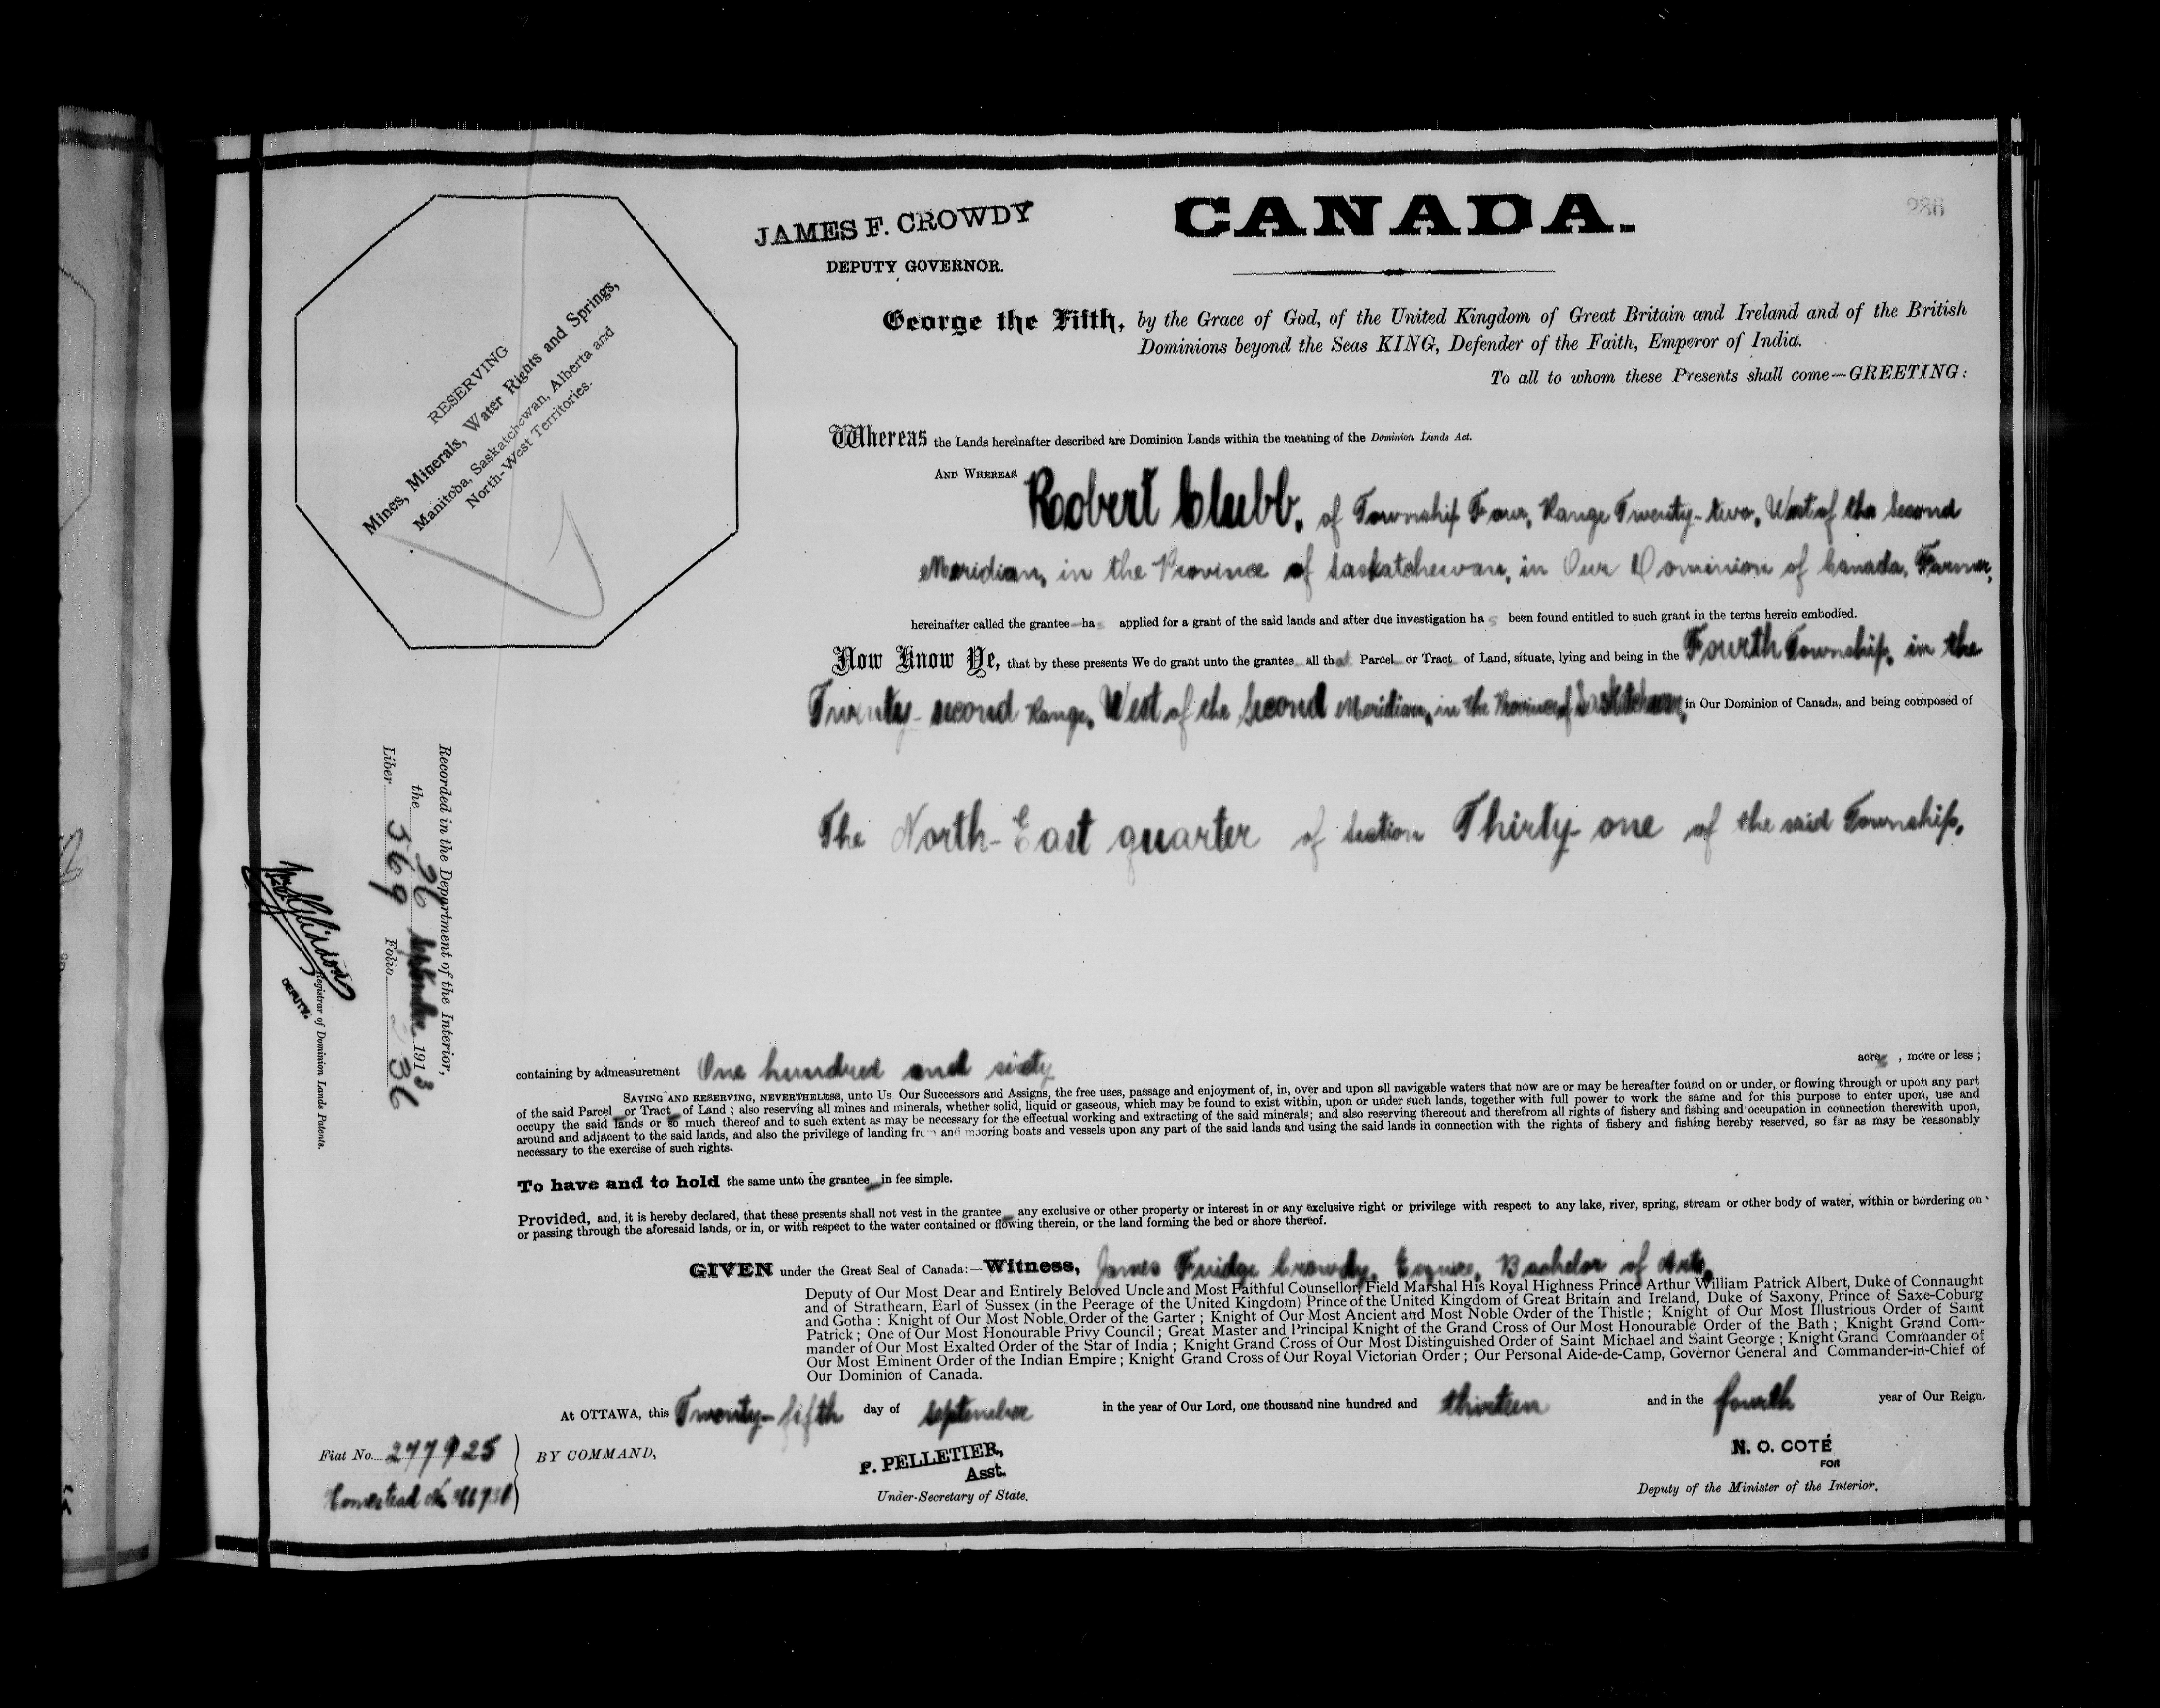 CANADA.
286
JAMES F. CROWDY
DEPUTY GOVERNOR.
RESERVING
Mines, Minerals, Water Rights and Springs,
Manitoba, Saskatchewan, Alberta and
North-West Territories.
George the Fifth, by the Grace of God, of the United Kingdom of Great Britain and Ireland and of the British
Dominions beyond the Seas KING, Defender of the Faith, Emperor of India.
To all to whom these Presents shall come—GREETING:
Whereas the Lands hereinafter described are Dominion Lands within the meaning of the Dominion Lands Act.
AND WHEREAS Robert Clubb, of Township Four, Range Twenty-two, West of the Second
Meridian, in the Province of Saskatchewan, in Our Dominion of Canada, Farmer,
hereinafter called the grantee has applied for a grant of the said lands and after due investigation has been found entitled to such grant in the terms herein embodied.
Now Know Ye, that by these presents We do grant unto the grantee all that Parcel or Tract of Land, situate, lying and being in the Fourth Township, in the
Twenty-second Range, West of the Second Meridian, in the Province of Saskatchewan, in Our Dominion of Canada, and being composed of
The North-East quarter of Section Thirty-one of the said Township,
Recorded in the Department of the Interior,
the 26 September 1913
Liber 569 Folio 236
Registrar of Dominion Lands Patents.
DEPUTY.
containing by admeasurement One hundred and sixty acres, more or less;
SAVING AND RESERVING, NEVERTHELESS, unto Us Our Successors and Assigns, the free uses, passage and enjoyment of, in, over and upon all navigable waters that now are or may be hereafter found on or under, or flowing through or upon any part
of the said Parcel or Tract of Land; also reserving all mines and minerals, whether solid, liquid or gaseous, which may be found to exist within, upon or under such lands, together with full power to work the same and for this purpose to enter upon, use and
occupy the said lands or so much thereof and to such extent as may be necessary for the effectual working and extracting of the said minerals; and also reserving thereout and therefrom all rights of fishery and fishing and occupation in connection therewith upon,
around and adjacent to the said lands, and also the privilege of landing from and mooring boats and vessels upon any part of the said lands and using the said lands in connection with the rights of fishery and fishing hereby reserved, so far as may be reasonably
necessary to the exercise of such rights.
To have and to hold the same unto the grantee in fee simple.
Provided, and, it is hereby declared, that these presents shall not vest in the grantee any exclusive or other property or interest in or any exclusive right or privilege with respect to any lake, river, spring, stream or other body of water, within or bordering on
or passing through the aforesaid lands, or in, or with respect to the water contained or flowing therein, or the land forming the bed or shore thereof.
GIVEN under the Great Seal of Canada:—Witness, James Fuidge Crowdy, Esquire, Bachelor of Arts,
Deputy of Our Most Dear and Entirely Beloved Uncle and Most Faithful Counsellor, Field Marshal His Royal Highness Prince Arthur William Patrick Albert, Duke of Connaught
and of Strathearn, Earl of Sussex (in the Peerage of the United Kingdom) Prince of the United Kingdom of Great Britain and Ireland, Duke of Saxony, Prince of Saxe-Coburg
and Gotha: Knight of Our Most Noble Order of the Garter; Knight of Our Most Ancient and Most Noble Order of the Thistle; Knight of Our Most Illustrious Order of Saint
Patrick; One of Our Most Honourable Privy Council; Great Master and Principal Knight of the Grand Cross of Our Most Honourable Order of the Bath; Knight Grand Com-
mander of Our Most Exalted Order of the Star of India; Knight Grand Cross of Our Most Distinguished Order of Saint Michael and Saint George; Knight Grand Commander of
Our Most Eminent Order of the Indian Empire; Knight Grand Cross of Our Royal Victorian Order; Our Personal Aide-de-Camp, Governor General and Commander-in-Chief of
Our Dominion of Canada.
At OTTAWA, this Twenty-fifth day of September in the year of Our Lord, one thousand nine hundred and thirteen and in the fourth year of Our Reign.
Fiat No. 277925
Homestead No
BY COMMAND,
P. PELLETIER,
Asst.
Under-Secretary of State.
N. O. COTÉ
FOR
Deputy of the Minister of the Interior.